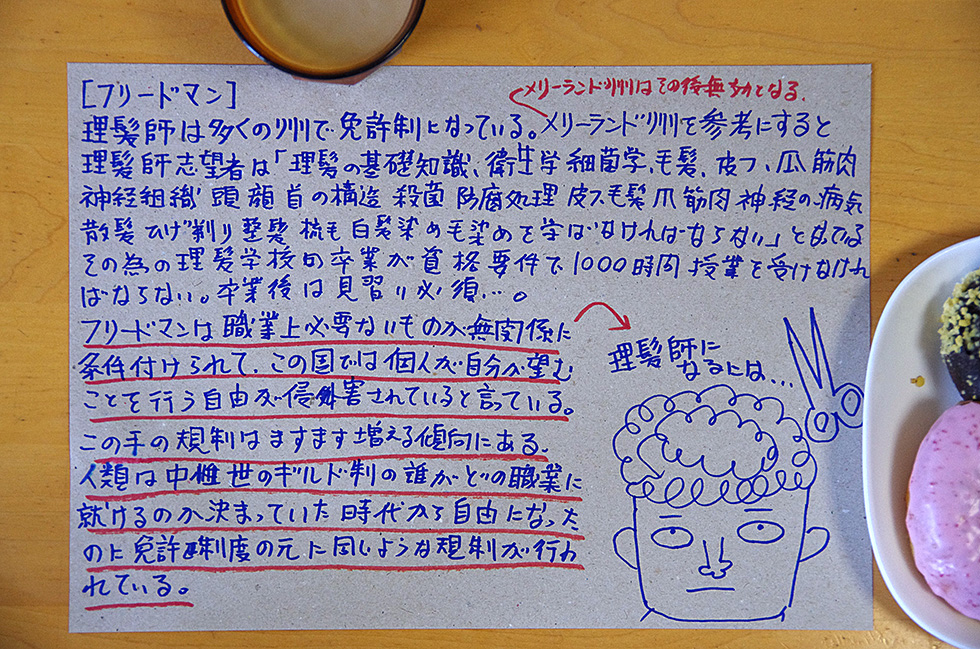 [フリードマン]
メリーランド州はその後無効となる.
理髪師は多くの州で免許制になっている。メリーランド州を参考にすると
理髪師志望者は「理髪の基礎知識、衛生学 細菌学、毛髪、皮フ、爪 筋肉
神経組織 頭 顔 首の構造 殺菌 防腐処理 皮フ毛髪爪筋肉神経の病気
散髪 ひげ剃り 整髪 梳毛 白髪染め毛染めを学ばなければならない」となっている
その為の理髪学校の卒業が資格要件で1000時間授業を受けなけれ
ばならない。卒業後は見習い必須…。
フリードマンは職業上必要ないものが無関係に
条件付けられて、この国では個人が自分が望む
ことを行う自由が侵害されていると言っている。
この手の規制はますます増える傾向にある。
人類は中世のギルド制の誰がどの職業に
就けるのか決まっていた時代から自由になった
のに免許制度の元に同じような規制が行わ
れている。
理髪師に
なるには...